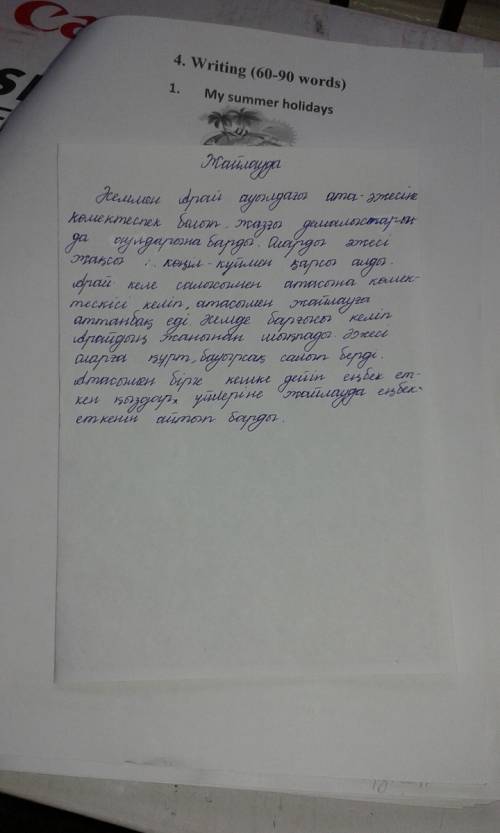 Ca
4. Writing (60-90 words)
1. My summer holidays
Жайлауда
Жеммен Арай ауылдағы ата-әжесіне
көмектеспек болып, жазғы демалыстарын
да ауылдарына барды. Оларды әжесі
жақсы көңіл-күймен қарсы алды.
Арай келе салысымен атасына көмек-
тескісі келіп, атасымен жайлауға
аттанбақ еді. Жемде барғысы келіп
Арайдың жанынан шықпады. Әжесі
оларға құрт, бауырсақ салып берді.
Атасымен бірге кешке дейін еңбек ет-
кен қыздар, үйлеріне жайлауда еңбек-
еткенін айтып барды.